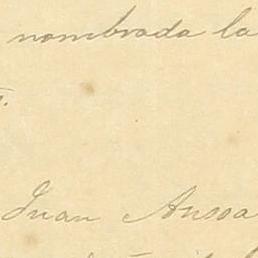 nombrada la
Juan Aussa